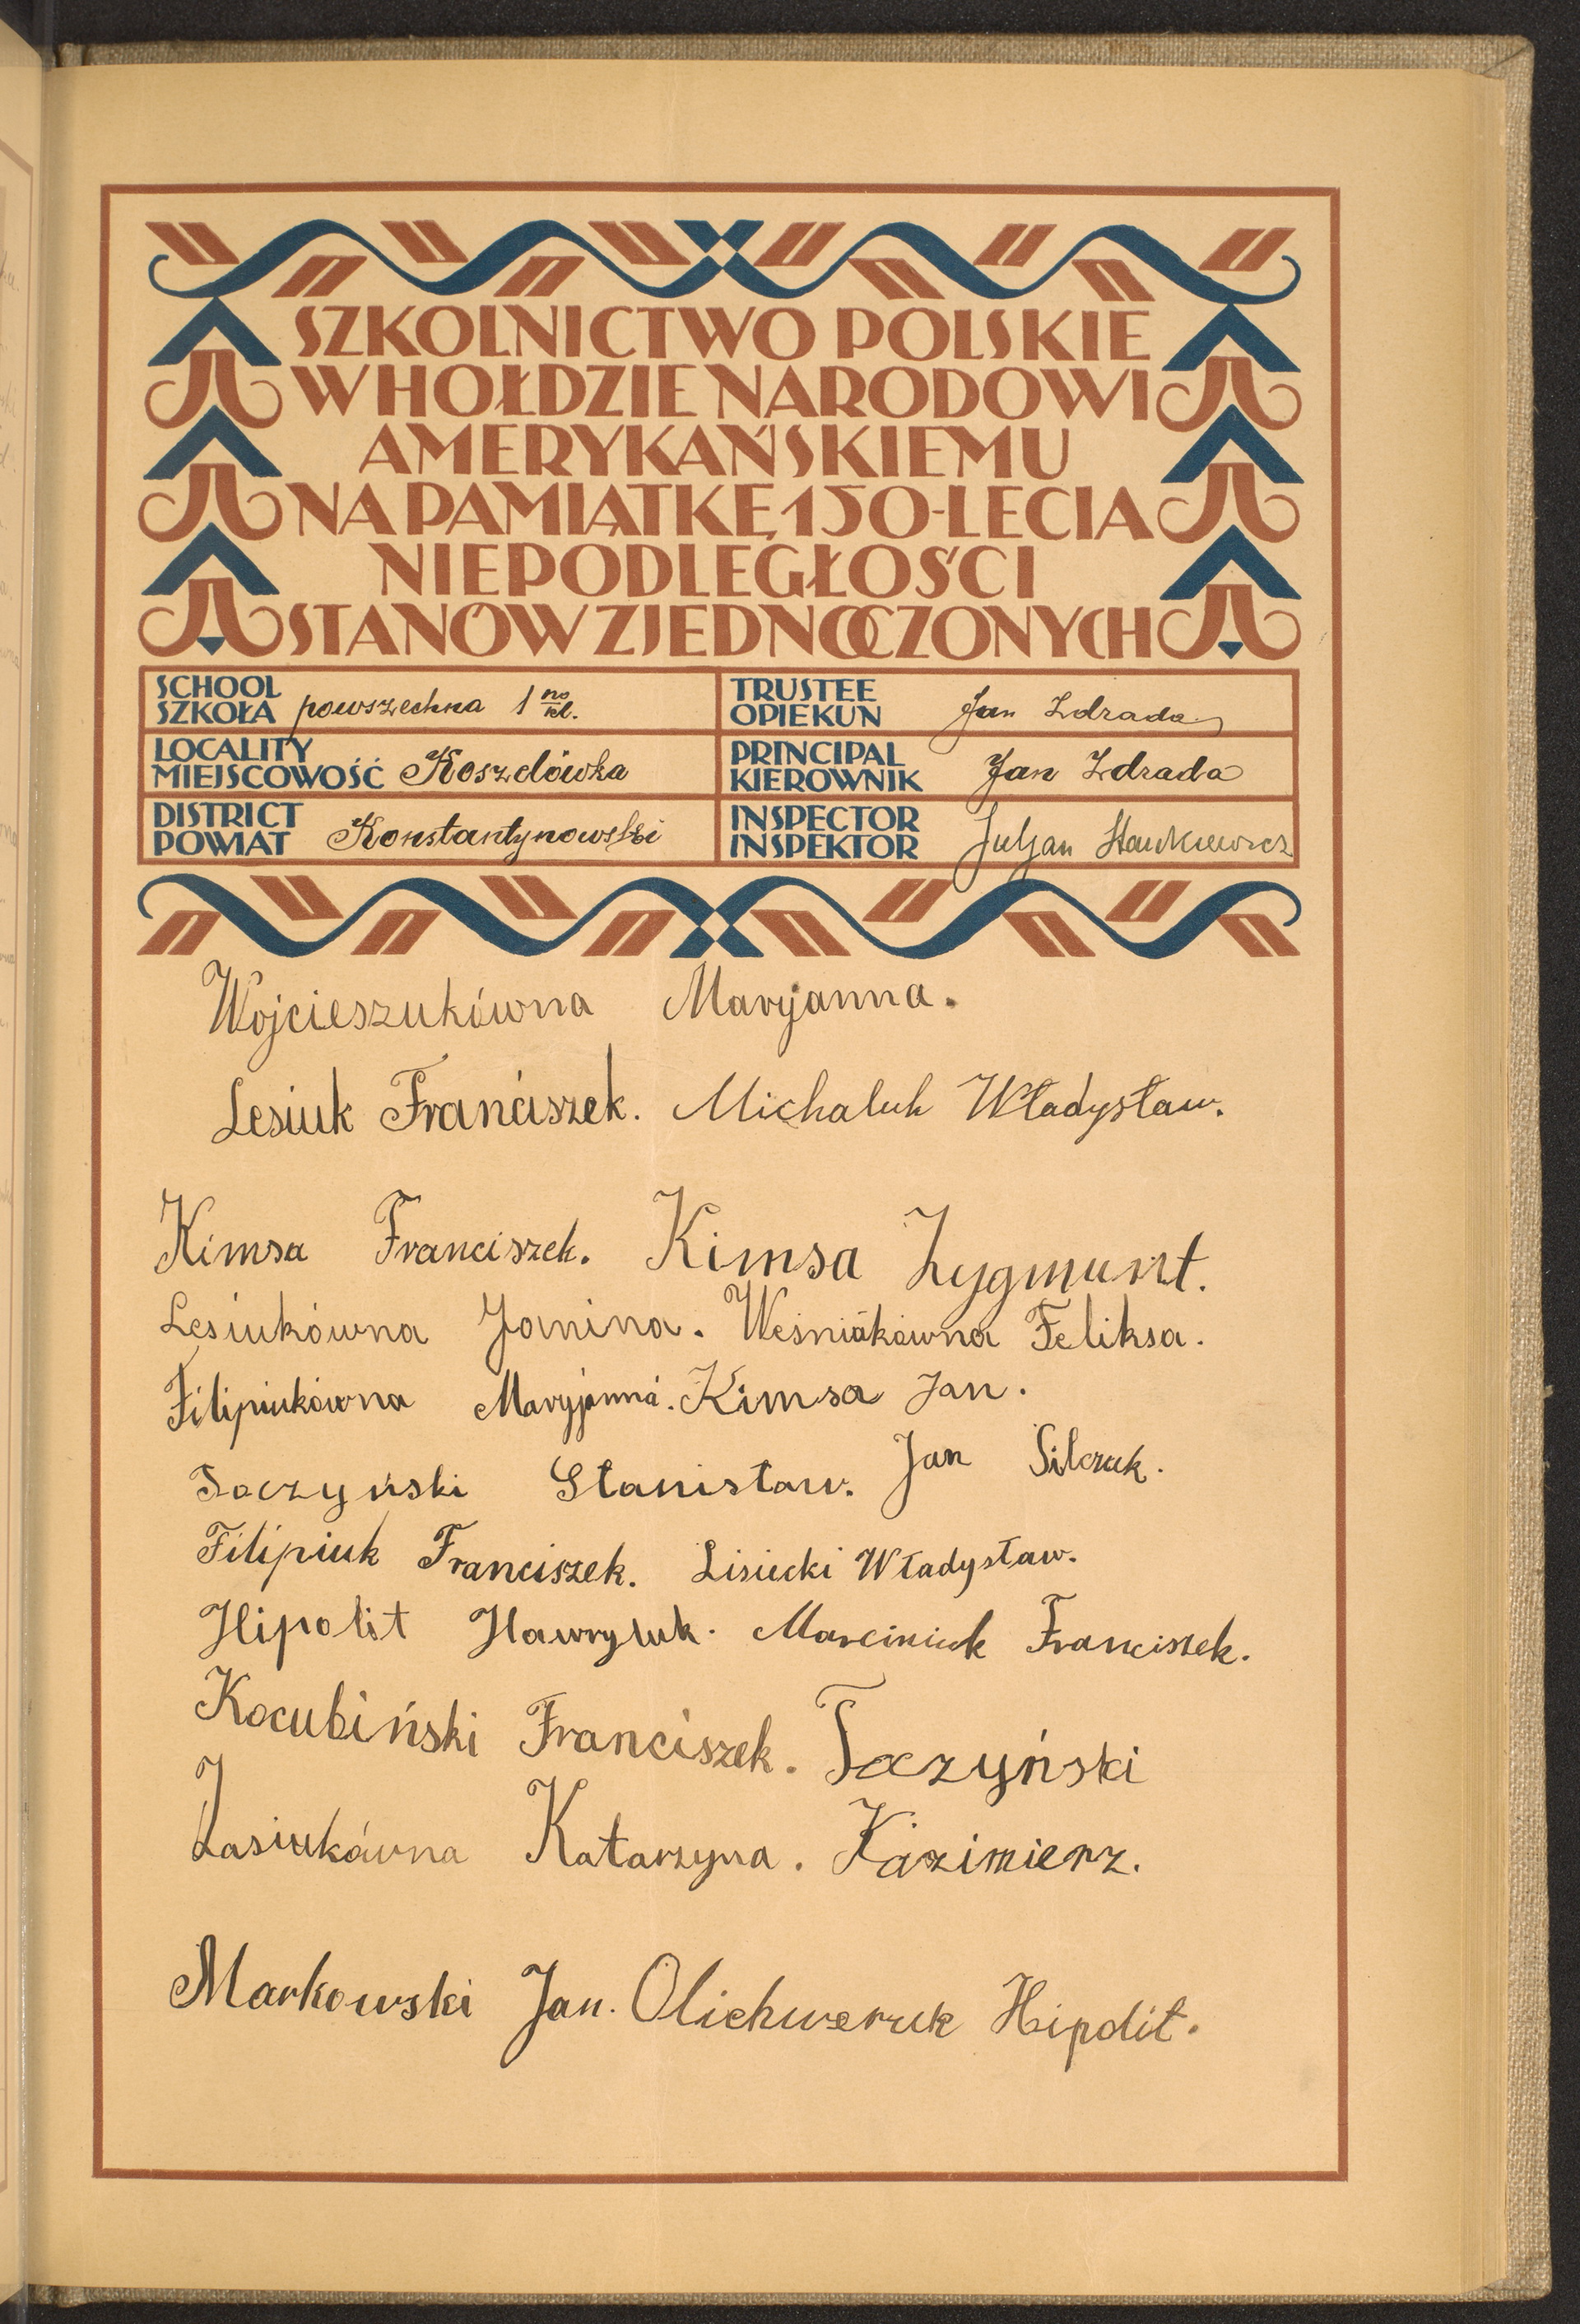 SZKOLNICTWO POLSKIE
W HOŁDZIE NARODOWI
AMERYKAŃSKIEMU
NA PAMIĄTKĘ 150-LECIA
NIEPODLEGŁOŚCI
STANÓW ZJEDNOCZONYCH
SCHOOL
SZKOŁA powszechna 1 no kl.
TRUSTEE
OPIEKUN Jan Zdrada
LOCALITY
MIEJSCOWOŚĆ Koszelówka
PRINCIPAL
KIEROWNIK Jan Zdrada
DISTRICT
POWIAT Konstantynowski
INSPECTOR
INSPEKTOR Juljan
Wojcieszukówna Maryjanna.
Lesiuk Franciszek. Michaluk Władysław.
Kimsa Franciszek. Kimsa Zygmunt.
Lesiukówna Janina. Weśniakówna Feliksa.
Filipiukówna Maryjanna. Kimsa Jan.
Toczyński Stanisław. Jan Silczuk.
Filipiuk Franciszek. Lisiecki Władysław.
Hipolit Hawryluk. Marciniuk Franciszek.
Kocubiński Franciszek. Toczyński
Lasiukówna Katarzyna. Kazimierz.
Markowski Jan. Olichweruk Hipolit.